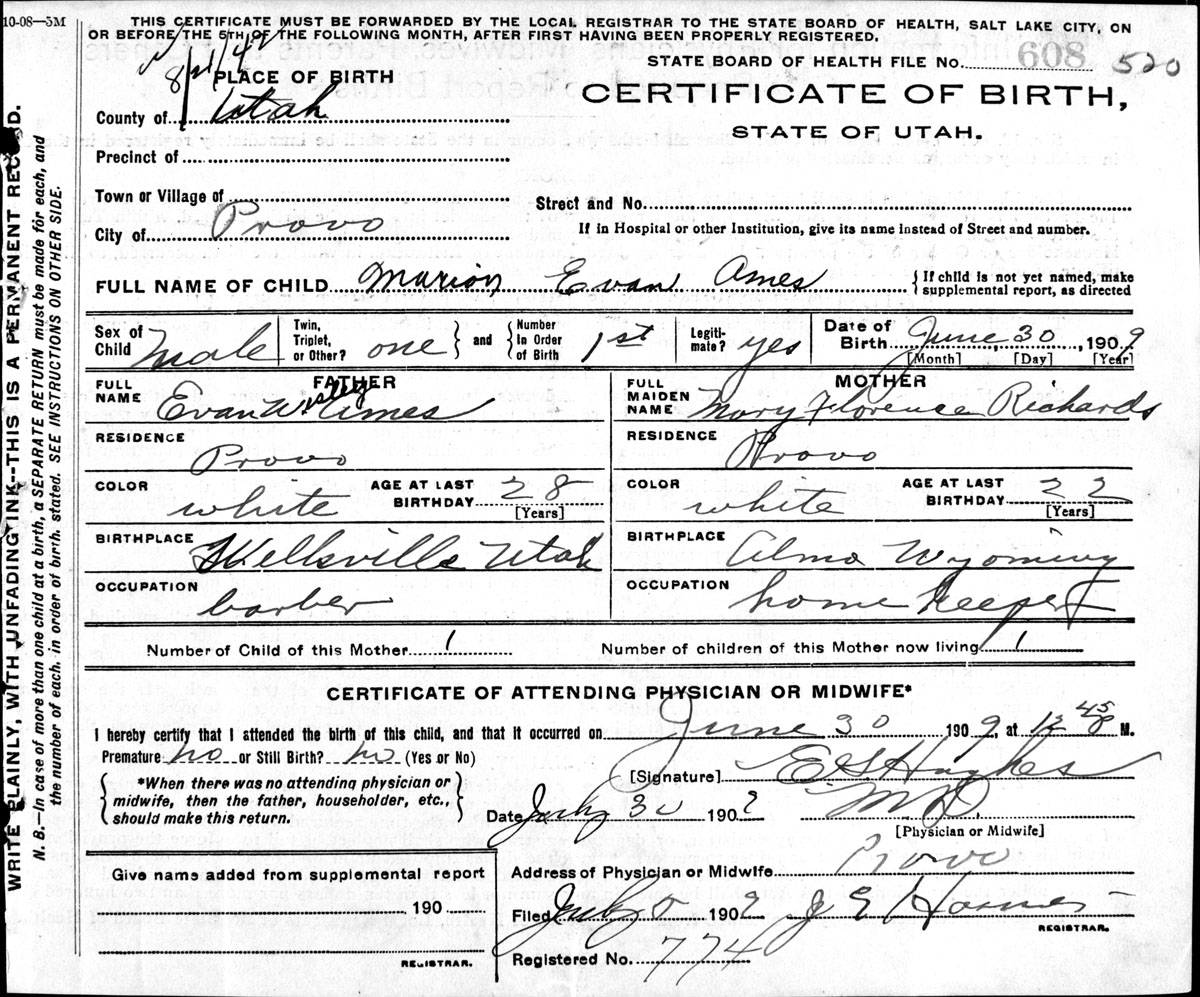 10-08—5M
THIS CERTIFICATE MUST BE FORWARDED BY THE LOCAL REGISTRAR TO THE STATE BOARD OF HEALTH, SALT LAKE CITY, ON
OR BEFORE THE 5TH OF THE FOLLOWING MONTH, AFTER FIRST HAVING BEEN PROPERLY REGISTERED.
STATE BOARD OF HEALTH FILE No. 608 520
PLACE OF BIRTH
CERTIFICATE OF BIRTH,
STATE OF UTAH.
County of Utah
Precinct of
Town or Village of
Street and No.
City of Provo
If in Hospital or other Institution, give its name instead of Street and number.
FULL NAME OF CHILD Marion Evan Ames {If child is not yet named, make
supplemental report, as directed
Sex of Child Male
Twin, Triplet, or Other? one } and { Number In Order of Birth 1st
Legiti-mate? yes
Date of Birth June 30 1909
[Month] [Day] [Year]
FATHER
FULL NAME Evan Wesley Ames
MOTHER
FULL MAIDEN NAME Mary Florence Richards
RESIDENCE Provo
RESIDENCE Provo
COLOR white AGE AT LAST BIRTHDAY 28 [Years]
COLOR white AGE AT LAST BIRTHDAY 22 [Years]
BIRTHPLACE Wellsville Utah
BIRTHPLACE Alma Wyoming
OCCUPATION barber
OCCUPATION home keeper
Number of Child of this Mother 1
Number of children of this Mother now living 1
CERTIFICATE OF ATTENDING PHYSICIAN OR MIDWIFE*
I hereby certify that I attended the birth of this child, and that it occurred on June 30 1909, at 12 45 M.
Premature no or Still Birth? no (Yes or No)
{*When there was no attending physician or
midwife, then the father, householder, etc.,
should make this return.}
[Signature] E S Hughes
Date July 30 1909 M D.
[Physician or Midwife]
Address of Physician or Midwife Provo
Give name added from supplemental report
190
REGISTRAR.
Filed July 5 1909
REGISTRAR.
Registered No. 774
WRITE PLAINLY, WITH UNFADING INK--THIS IS A PERMANENT RECORD.
N. B.—In case of more than one child at a birth, a SEPARATE RETURN must be made for each, and
the number of each, in order of birth, stated. SEE INSTRUCTIONS ON OTHER SIDE.